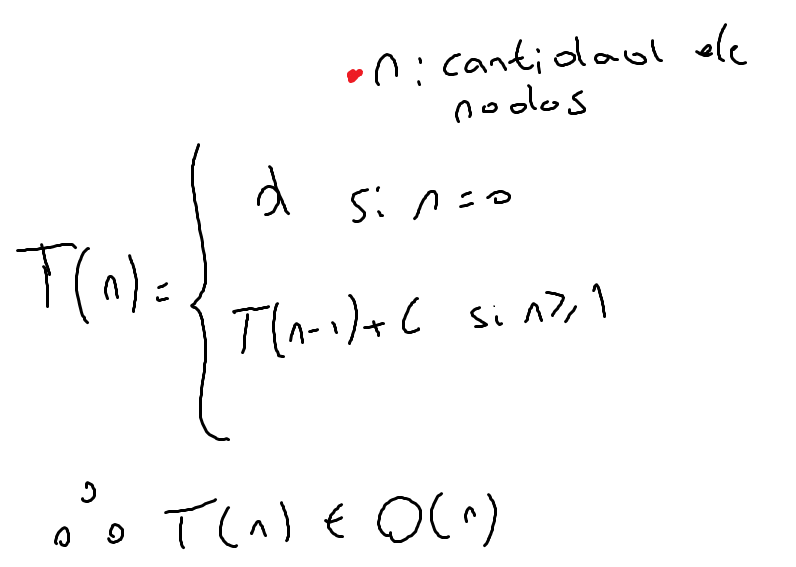 • n: cantidad de
nodos
d si n=0
T(n)=
T(n-1)+c si n≥1
∴ T(n) ∈ O(n)